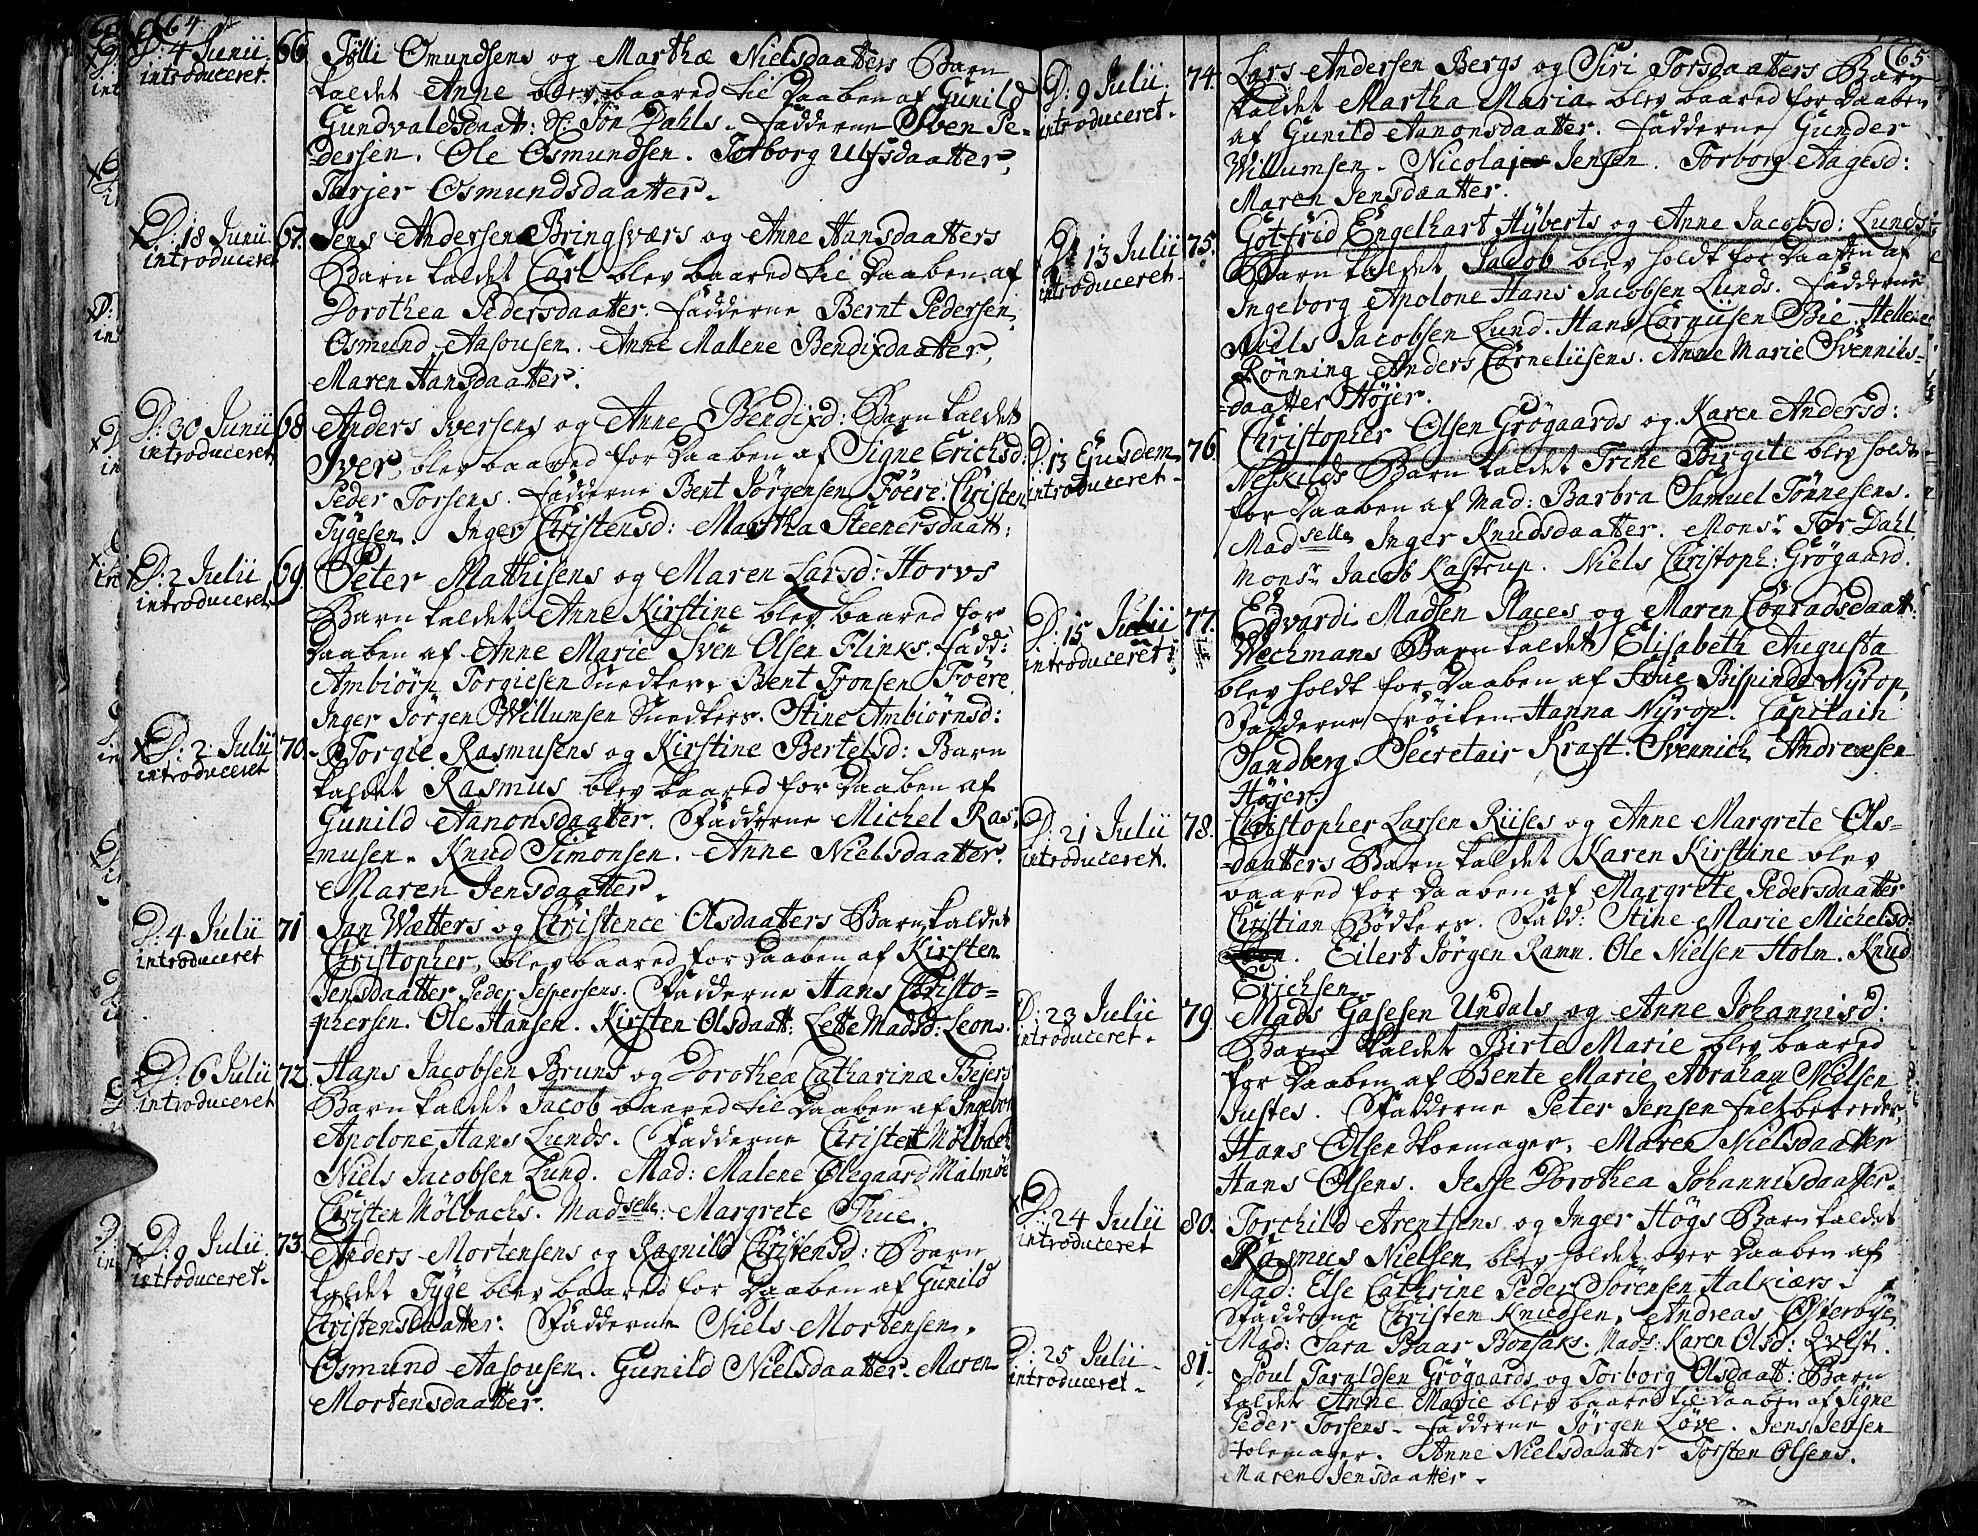 64
D: 4 Junii
introduceret.
66
Tölli Omundsens og Marthæ Nielsdaatters Barn
kaldet Anne blev baared til Daaben af Gunild
Gundvaldsdaat: Jon Dahls. Fadderne Sven Pe-
dersen. Ole Osmundsen. Torborg Ulfsdaatter,
Tarjer Osmundsdaatter.
D: 18 Junii
introduceret
67.
Jens Andersen Bringsværs og Anne Hansdaatters
Barn kaldet Carl blev baared til Daaben af
Dorothea Pedersdaatter. Fadderne Bernt Pedersen,
Osmund Aasousen. Anne Malene Bendixdaatter,
Maren Hansdaatter.
D: 30 Junii
introduceret
68
Anders Iversens og Anne Bendixd: Barn kaldet
Iver, blev baared for Daaben af Signe Erichsd:
Peder Torsens. Fadderne Bent Jørgensen Föere. Christen
Tygesen. Inger Christensd: Martha Steenersdaatt:
D: 2 Julii
introduceret
69.
Peter Mathisens og Maren Larsd: Horvs
Barn kaldet Anne Kirstine blev baared for
Daaben af Anne Marie Sven Olsen Flinks. Fadd:
Ambiörn Torgiesen Snedker. Bent Tronsen Föere
Inger Jörgen Willumsen Snedkers. Stine Ambiörnsd:
D: 2 Julii
introduceret
70.
Torgie Rasmusens og Kirstine Bertelsd: Barn
kaldet Rasmus blev baared for Daaben af
Gunild Aanonsdaatter. Fadderne Michel Ras-
musen. Knud Simonsen. Anne Nielsdaatter.
Maren Jensdaatter.
D: 4 Julii
introduceret
71
Jan Wætters og Christence Olsdaatters Barn kaldet
Christopher, blev baared for Daaben af Kirsten
Jensdaatter Peder Jespersens. Fadderne Hans Christo-
phersen. Ole Hansen. Kirsten Olsdaatt: Lette Madsd: Leon.
D: 6 Julii
introduceret
72.
Hans Jacobsen Bruns og Dorothea Catharinæ Bejers
Barn kaldet Jacob baared til Daaben af Ingeborg
Apolone Hans Lunds. Fadderne Christen Mölbach
Niels Jacobsen Lund. Mad: Malene Olegaard Malmöe
Christen Mölbachs. Madselle: Margrete Thue.
D: 9 Julii
introduceret.
73.
Anders Mortensens og Ragnild Christensd: Barn
kaldet Tyge blev baared for Daaben af Gunild
Christensdaatter. Fadderne Niels Mortensen.
Osmund Aasousen. Gunild Nielsdaatter. Maren
Mortensdaatter.
65
D: 9 Julii
introduceret.
74.
Lars Andersen Bergs og Siri Torsdaatters Barn
kaldet Martha Maria blev baared for Daaben
af Gunild Aanonsdaatter. Fadderne Gunder
Willumsen. Nicolaj Jensen. Torborg Aagesd:
Maren Jensdaatter.
D: 13 Julii
introduceret.
75.
Gotfrid Engelhart Hyberts og Anne Jacobsd: Lunds
Barn kaldet Jacob blev holdt for Daaben af
Ingeborg Apolone Hans Jacobsen Lunds. Fadderne
Niels Jacobsen Lund. Hans Corniisen Bie. Hellene
Rönning Anders Corneliisens. Anne Marie Svenniks-
daatter Höjer.
D: 13 Ejusdem
introduceret.
76
Christopher Olsen Grögaards og Karen Andersd:
Neskilds Barn kaldet Trine Birgite blev holdt
for Daaben af Mad: Barbra Samuel Tönnesens.
Madselle Inger Knudsdaatter. Monsr Tor Dahl.
Monsr Jacob Kastrup. Niels Christoph: Grögaard.
D: 15 Julii
introduceret
77.
Edvardi Madsen Places og Maren Conradsdaatt:
Wechmans Barn kaldet Elisabeth Augusta
blev holdt for Daaben af Frue Bispinde Nyrop,
Fadderne Fröiken Hanna Nyrop. Capitain
Sandberg. Secretair Kraft. Svennich Andreasen
Höjer.
D: 21 Julii
introduceret.
78.
Christopher Larsen Riises og Anne Margrete Ols-
daatters Barn kaldet Karen Kirstine blev
baared for Daaben af Margrete Pedersdaatter
Christian Bödkers. Fadd: Stine Marie Michelsd:
Eilert Jörgen Ramn. Ole Nielsen Holm. Knud
Erichsen.
D: 23 Julii
introduceret.
79
Mads Gasesen Undals og Anne Johannisd:
Barn kaldet Birte Marie blev baared
for Daaben af Bente Marie Abraham Nielsen
Justes. Fadderne Peter Jensen Feltbereeder,
Hans Olsen Skoemager. Maren Nielsdaatter
Hans Olsens. Jesse Dorothea Johannisdaatter.
D: 24 Julii
introduceret
80.
Torchild Arentsens og Inger Högs Barn kaldet
Rasmus Nielsen, blev holdet over Daaben af
Mad: Else Cathrine Peder Sörensen Halkiærs.
Fadderne Christen Knudsen, Andreas Österbye
Mad: Sara Baar Bonsaks. Mads: Karen Olsd: Qvist.
D: 25 Julii
introduceret.
81.
Poul Taraldsen Grögaards og Torborg Olsdaatt: Barn
kaldet Anne Marie blev baared til Daaben af Signe
Peder Torsens. Fadderne Jörgen Löve. Jens Jensen
Stolemager. Anne Nielsdaatter Torsten Olsens.
Maren Jensdaatter.